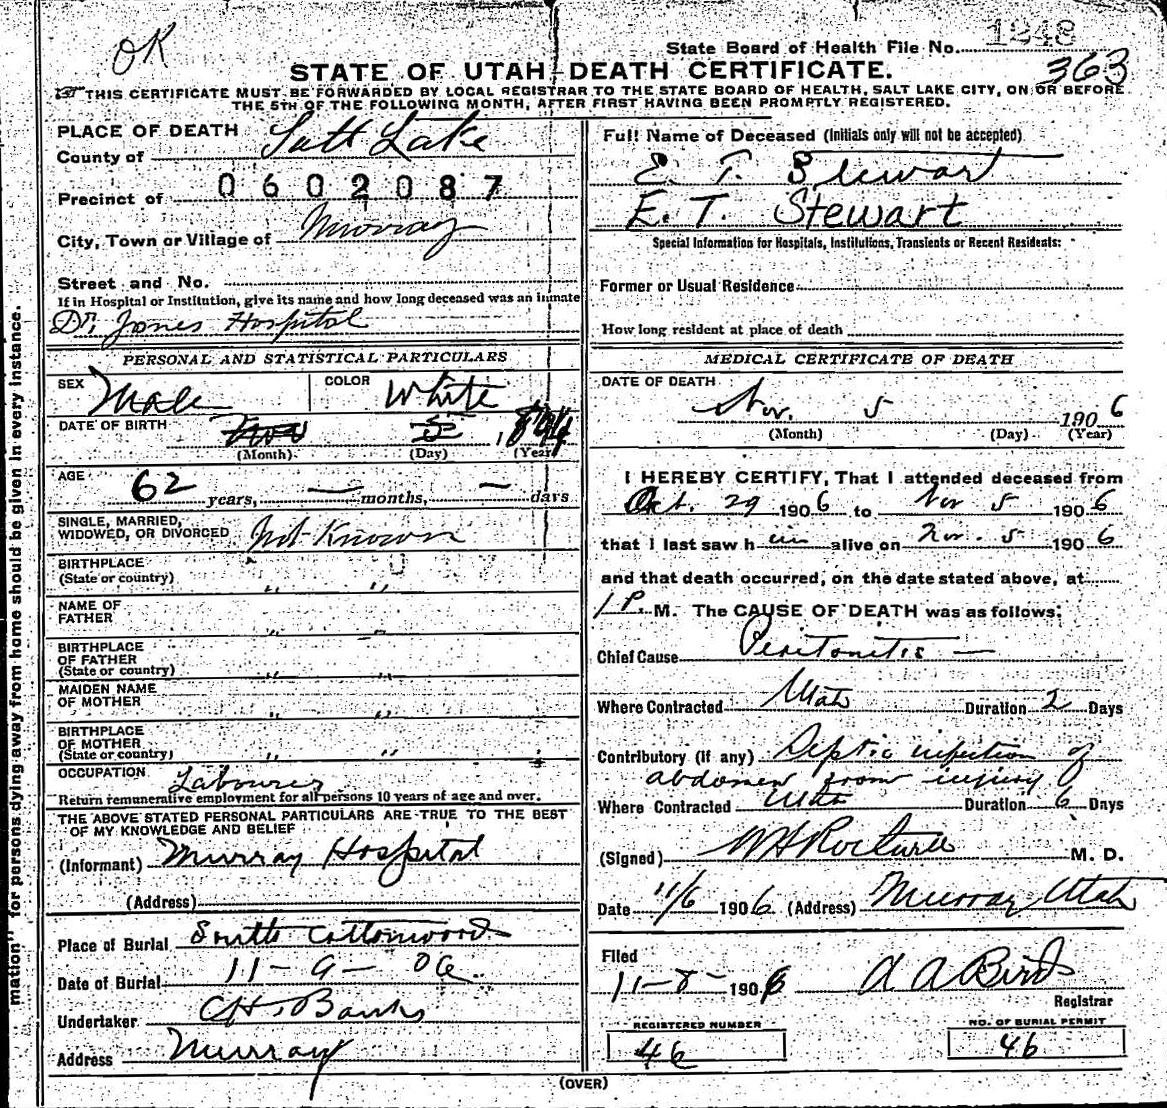 OK
State Board of Health File No. 1248
363
STATE OF UTAH-DEATH CERTIFICATE.
THIS CERTIFICATE MUST BE FORWARDED BY LOCAL REGISTRAR TO THE STATE BOARD OF HEALTH, SALT LAKE CITY, ON OR BEFORE
THE 5TH OF THE FOLLOWING MONTH, AFTER FIRST HAVING BEEN PROMPTLY REGISTERED.
PLACE OF DEATH
County of Salt Lake
Precinct of 0602087
City, Town or Village of Murray
Street and No.
If in Hospital or Institution, give its name and how long deceased was an inmate
Dr. Jones Hospital
PERSONAL AND STATISTICAL PARTICULARS
SEX Male COLOR White
DATE OF BIRTH Nov 5
(Month) (Day) (Year)
AGE 62 years, — months, — days
SINGLE, MARRIED,
WIDOWED, OR DIVORCED Not Known
BIRTHPLACE
(State or country) " "
NAME OF
FATHER " "
BIRTHPLACE
OF FATHER
(State or country) " "
MAIDEN NAME
OF MOTHER " "
BIRTHPLACE
OF MOTHER
(State or country) " "
OCCUPATION Labourer
Return remunerative employment for all persons 10 years of age and over.
THE ABOVE STATED PERSONAL PARTICULARS ARE TRUE TO THE BEST
OF MY KNOWLEDGE AND BELIEF
(Informant) Murray Hospital
(Address)
Place of Burial South Cottonwood
Date of Burial 11-9-06
Undertaker C H. Banks
Address Murray
Full Name of Deceased (Initials only will not be accepted)
E. T. Stewart
E. T. Stewart
Special Information for Hospitals, Institutions, Transients or Recent Residents:
Former or Usual Residence
How long resident at place of death
MEDICAL CERTIFICATE OF DEATH
DATE OF DEATH
Nov. 5 1906
(Month) (Day) (Year)
I HEREBY CERTIFY, That I attended deceased from
Oct. 29 1906 to Nov 5 1906
that I last saw h im alive on Nov. 5 1906
and that death occurred, on the date stated above, at
1 P. M. The CAUSE OF DEATH was as follows:
Chief Cause Peritonitis —
Where Contracted Utah Duration 2 Days
Contributory (if any) Septic infection of
abdomen from injury
Where Contracted Utah Duration 6 Days
(Signed) M. D.
Date 11/6 1906 (Address) Murray Utah
Filed
11-8- 1906 A A Bird
Registrar
REGISTERED NUMBER
46
NO. OF BURIAL PERMIT
46
(OVER)
mation" for persons dying away from home should be given in every instance.